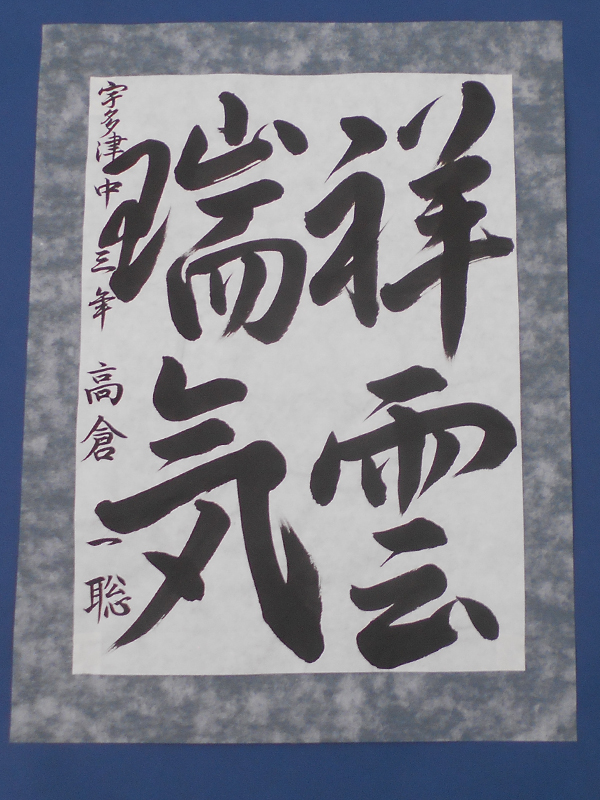 祥雲
瑞気
宇多津中三年 高倉一聡